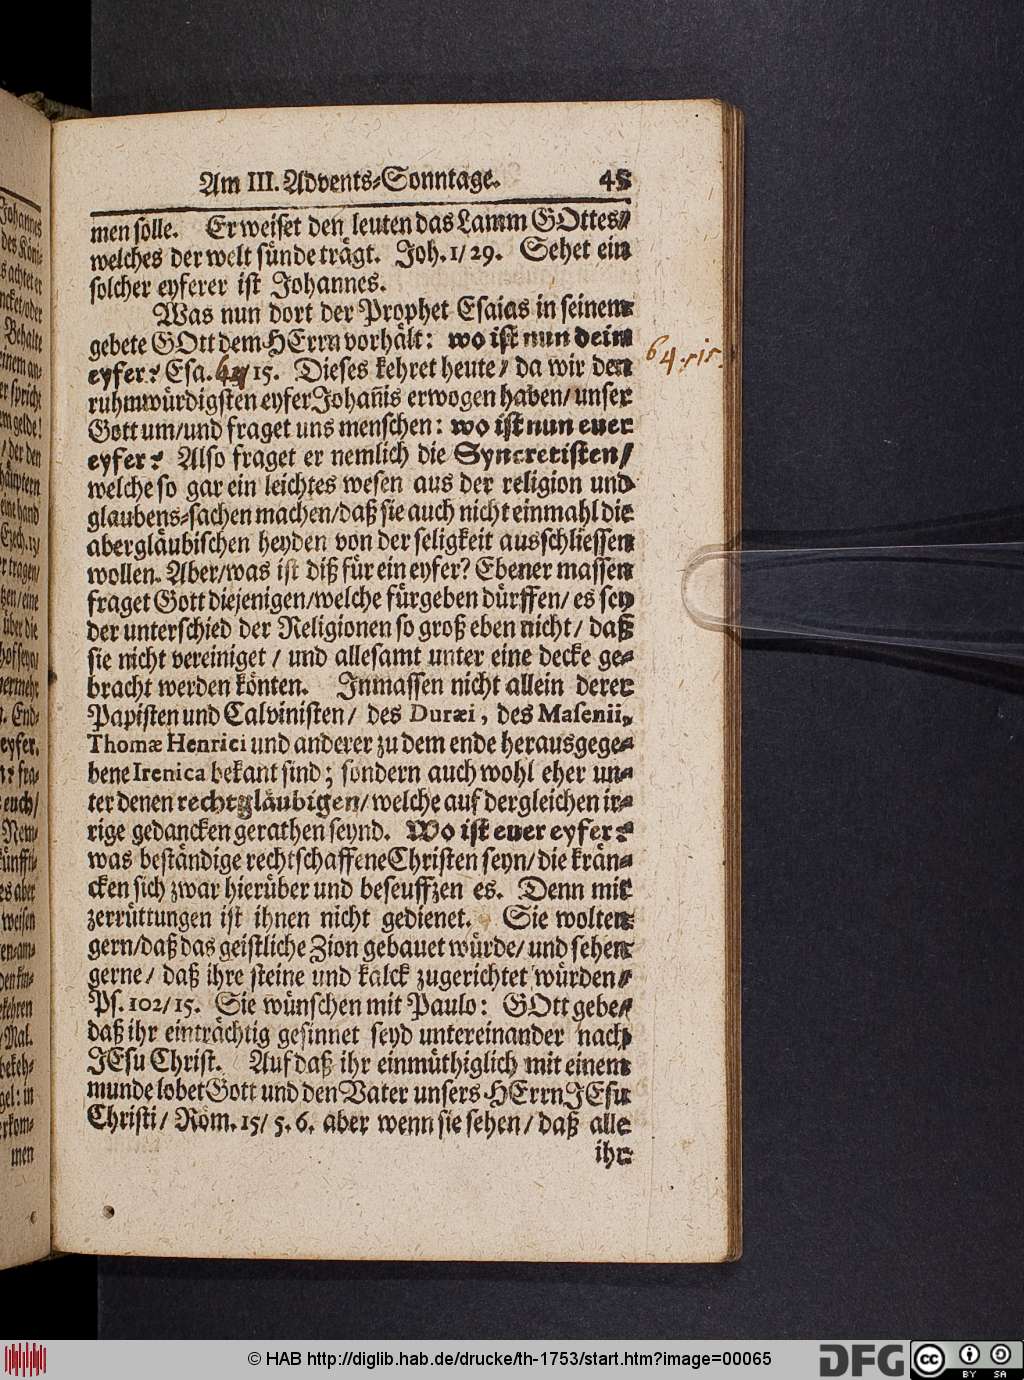 Am III. Advents-Sonntage. 45
men solle. Er weiset den leuten das Lamm GOttes/
welches der welt sünde trägt. Joh. 1/29. Sehet ein
solcher eyferer ist Johannes.
Was nun dort der Prophet Esaias in seinem
gebete GOtt dem HErrn vorhält: wo ist nun dein
eyfer? Esa. 15. Dieses kehret heute/ da wir den
64.
ruhmwürdigsten eyfer Johañis erwogen haben/ unser
Gott um/und fraget uns menschen: wo ist nun euer
eyfer? Also fraget er nemlich die Syncretisten/
welche so gar ein leichtes wesen aus der religion und
glaubens-sachen machen/daß sie auch nicht einmahl die
abergläubischen heyden von der seligkeit ausschliessen
wollen. Aber/was ist diß für ein eyfer? Ebener massen
fraget Gott diejenigen/welche fürgeben dürffen/ es sey
der unterschied der Religionen so groß eben nicht/ daß
sie nicht vereiniget / und allesamt unter eine decke ge-
bracht werden könten. Inmassen nicht allein derer
Papisten und Calvinisten/ des Duræi, des Masenii,
Thomæ Henrici und anderer zu dem ende herausgege-
bene Irenica bekant sind; sondern auch wohl eher un-
ter denen rechtgläubigen/welche auf dergleichen ir-
rige gedancken gerathen seynd. Wo ist euer eyfer?
was beständige rechtschaffene Christen seyn/die krän-
cken sich zwar hierüber und beseuffzen es. Denn mit
zerrüttungen ist ihnen nicht gedienet. Sie wolten
gern/daß das geistliche Zion gebauet würde/ und sehen
gerne/ daß ihre steine und kalck zugerichtet würden/
Ps. 102/15. Sie wünschen mit Paulo: GOtt gebe/
daß ihr einträchtig gesinnet seyd untereinander nach
JEsu Christ. Auf daß ihr einmüthiglich mit einem
munde lobet Gott und den Vater unsers HErrn JEsu
Christi/ Röm. 15/ 5. 6. aber wenn sie sehen/ daß alle
ihr
© HAB http://diglib.hab.de/drucke/th-1753/start.htm?image=00065
DFG
cc
BY SA